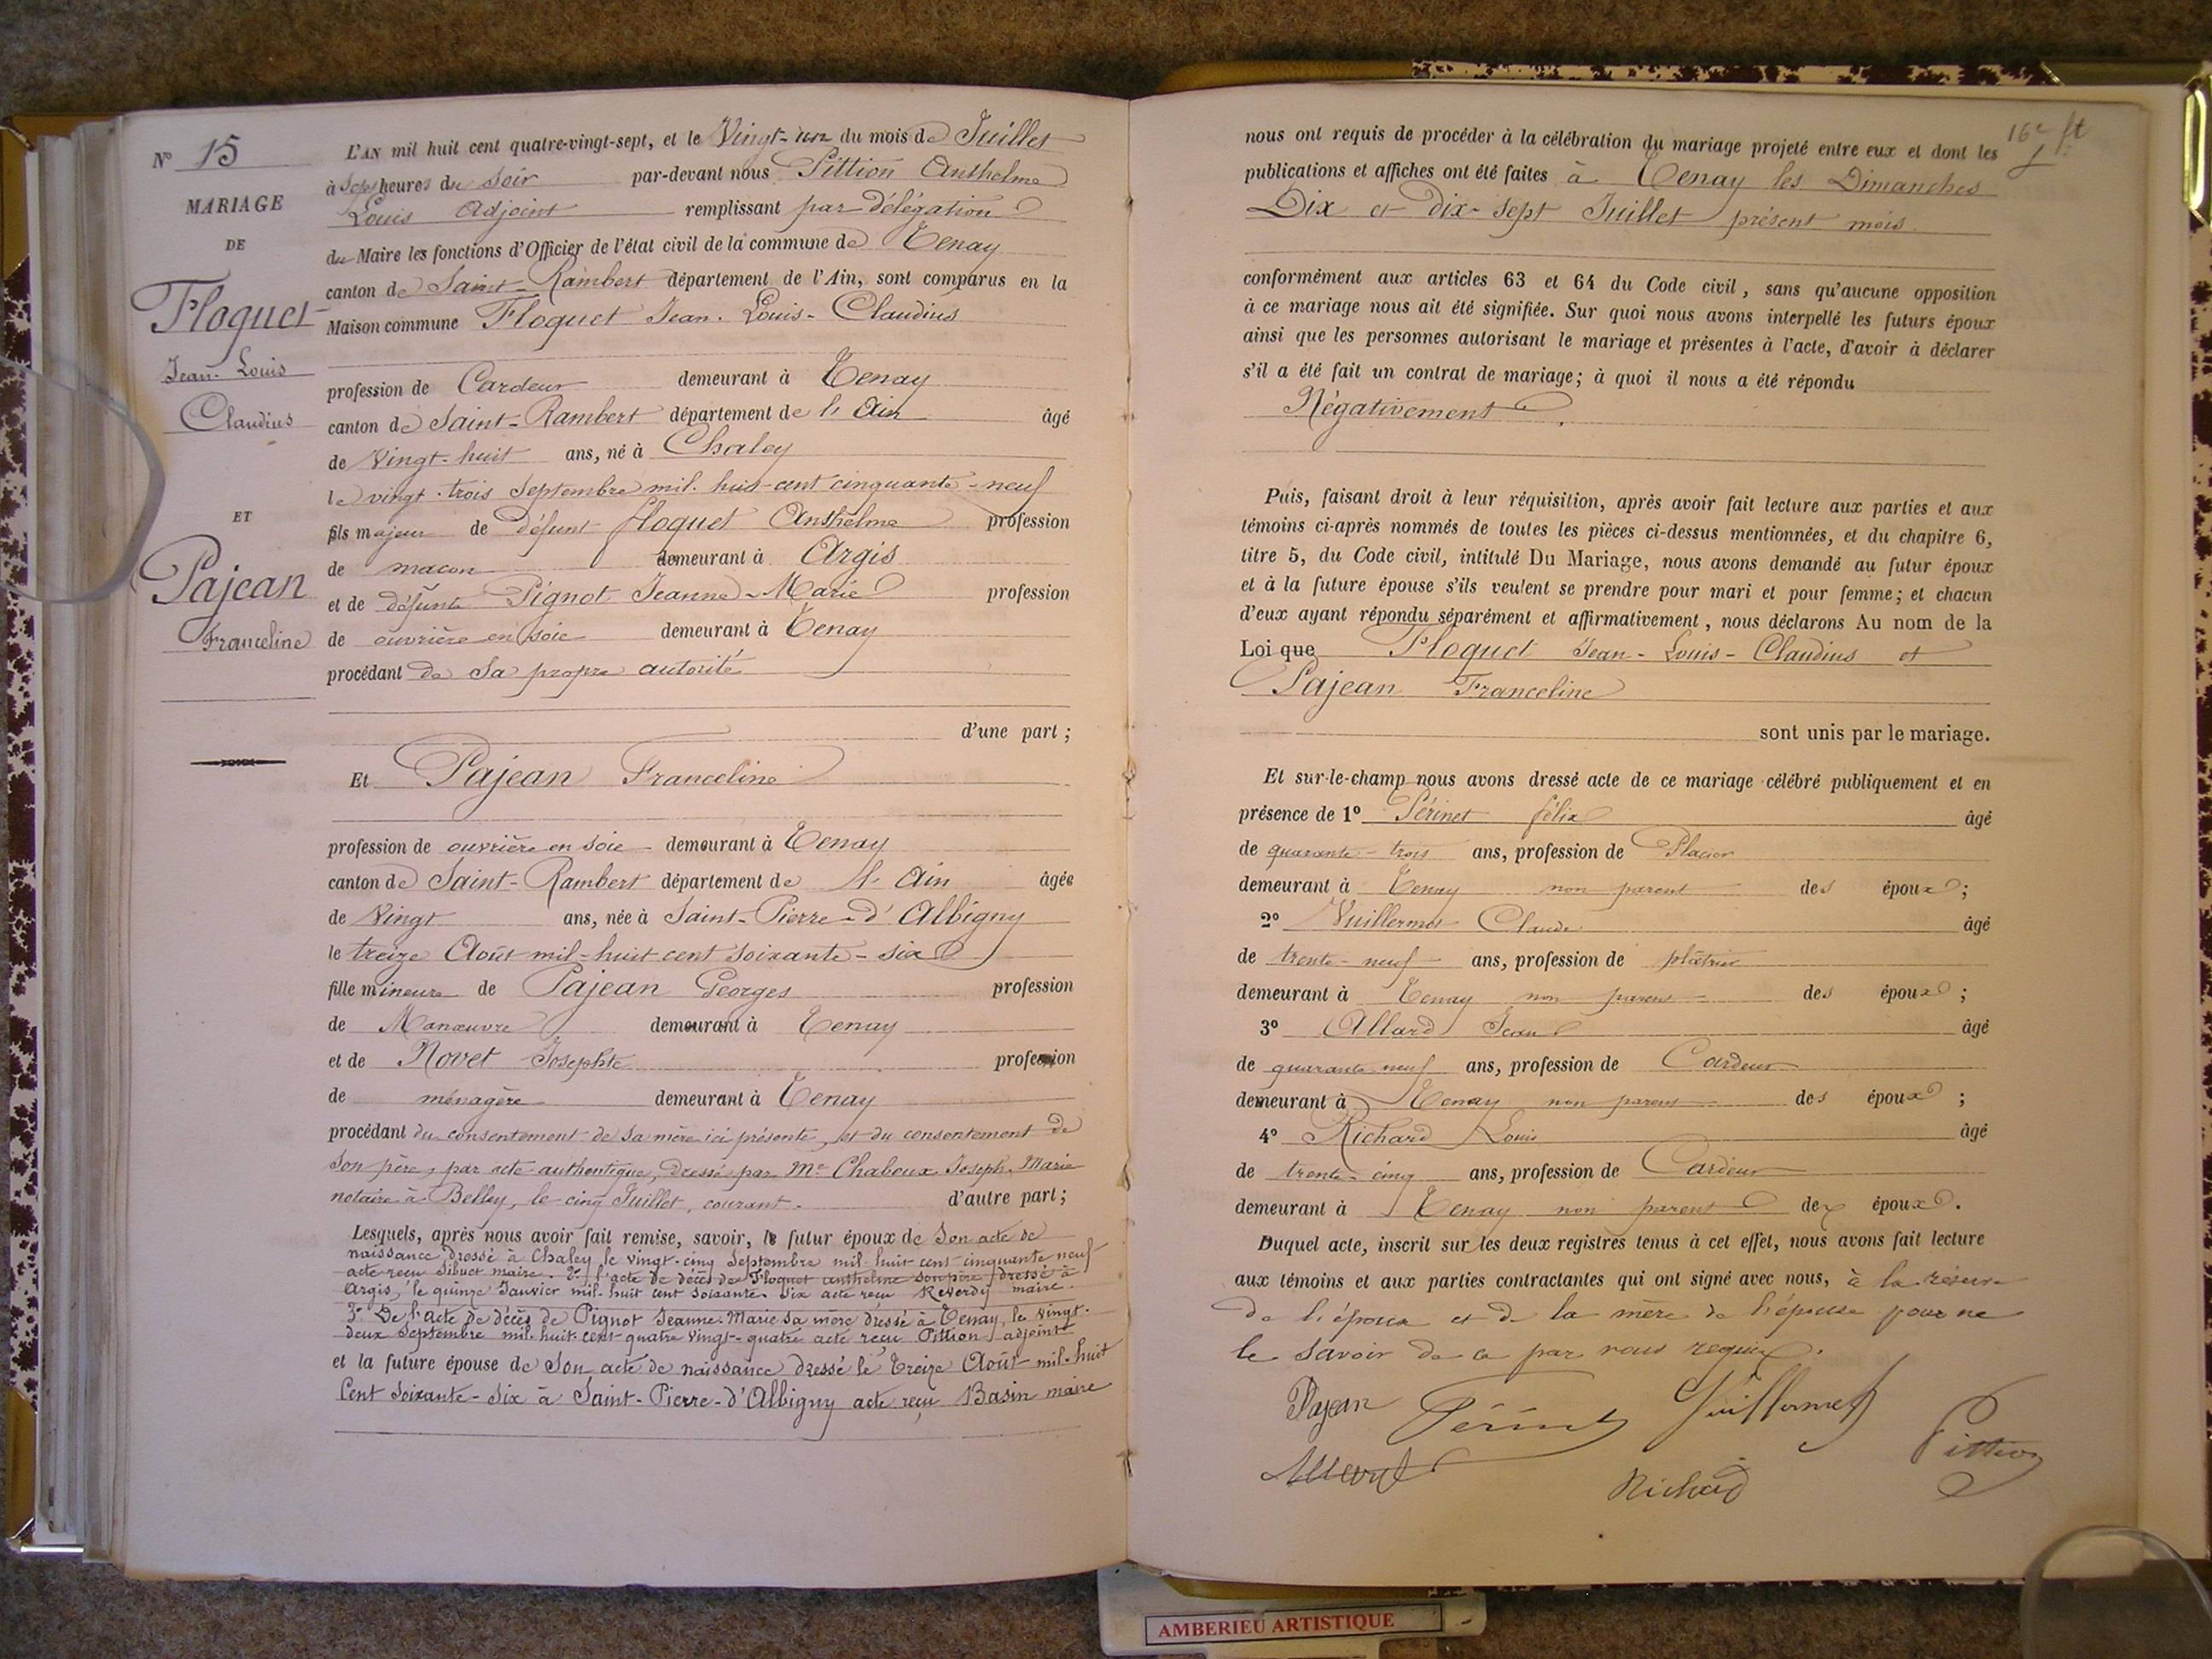 N° 15
MARIAGE
DE
Floquet
Jean-Louis
Claudius
ET
Pajean
Franceline
L'AN mil huit cent quatre-vingt-sept, et le Vingt-un du mois de Juillet
à Sept heures du Soir par-devant nous Pittion Anthelme
Louis Adjoint remplissant par délégation
du Maire les fonctions d'Officier de l'état civil de la commune de Tenay
canton de Saint-Rambert département de l'Ain, sont comparus en la
Maison commune Floquet Jean-Louis-Claudius
profession de Cardeur demeurant à Tenay
canton de Saint-Rambert département de l'Ain âgé
de Vingt-huit ans, né à Chaley
le vingt-trois Septembre mil-huit-cent cinquante-neuf
fils majeur de défunt Floquet Anthelme profession
de macon demeurant à Argis
et de défunte Pignot Jeanne-Marie profession
de ouvrière en soie demeurant à Tenay
procédant de Sa propre autorité
d'une part ;
Et Pajean Franceline
profession de ouvrière en soie demeurant à Tenay
canton de Saint-Rambert département de l'Ain âgée
de Vingt ans, née à Saint-Pierre-d'Albigny
le treize Août mil-huit cent soixante-six
fille mineure de Pajean Georges profession
de Manœuvre demeurant à Tenay
et de Novet Josephte profession
de ménagère demeurant à Tenay
procédant du consentement de Sa mère ici présente, et du consentement de
Son père, par acte authentique, dressé par Me Chabeux Joseph-Marie
notaire à Belley, le cinq Juillet, courant. d'autre part ;
Lesquels, après nous avoir fait remise, savoir, le futur époux de Son acte de
naissance dressé à Chaley le vingt-cinq Septembre mil-huit cent cinquante neuf
acte reçu Sibuet maire. 2° l'acte de décès de Floquet anthelme son père dressé à
Argis, le quinze Janvier mil-huit cent soixante-six acte reçu Reverdy maire
3° De l'acte de décès de Pignot Jeanne-Marie sa mère dressé à Tenay, le vingt-
deux Septembre mil-huit-cent-quatre vingt-quatre acte reçu Pittion adjoint
et la future épouse de Son acte de naissance dressé le Treize Août mil-huit
Cent Soixante-Six à Saint-Pierre-d'Albigny acte reçu Basin maire
16e ft
nous ont requis de procéder à la célébration du mariage projeté entre eux et dont les
publications et affiches ont été faites à Tenay les Dimanches
Dix et dix-sept Juillet présent mois
conformément aux articles 63 et 64 du Code civil, sans qu'aucune opposition
à ce mariage nous ait été signifiée. Sur quoi nous avons interpellé les futurs époux
ainsi que les personnes autorisant le mariage et présentes à l'acte, d'avoir à déclarer
s'il a été fait un contrat de mariage ; à quoi il nous a été répondu
Négativement.
Puis, faisant droit à leur réquisition, après avoir fait lecture aux parties et aux
témoins ci-après nommés de toutes les pièces ci-dessus mentionnées, et du chapitre 6,
titre 5, du Code civil, intitulé Du Mariage, nous avons demandé au futur époux
et à la future épouse s'ils veulent se prendre pour mari et pour femme ; et chacun
d'eux ayant répondu séparément et affirmativement, nous déclarons Au nom de la
Loi que Floquet Jean-Louis-Claudius et
Pajean Franceline
sont unis par le mariage.
Et sur-le-champ nous avons dressé acte de ce mariage célébré publiquement et en
présence de 1° Périnet félix âgé
de quarante-trois ans, profession de Placier
demeurant à Tenay non parent des époux ;
2° Vuillermot Claude âgé
de trente-neuf ans, profession de plâtrier
demeurant à Tenay non parent des époux ;
3° Allard Jean âgé
de quarante neuf ans, profession de Cardeur
demeurant à Tenay non parent des époux ;
4° Richard Louis âgé
de trente-cinq ans, profession de Cardeur
demeurant à Tenay non parent des époux.
Duquel acte, inscrit sur les deux registres tenus à cet effet, nous avons fait lecture
aux témoins et aux parties contractantes qui ont signé avec nous, à la réserve
de l'époux et de la mère de l'épouse pour ne
le Savoir de ce par nous requis.
Pajean Périnet Vuillermot
Pittion
Allard Richard
AMBERIEU ARTISTIQUE